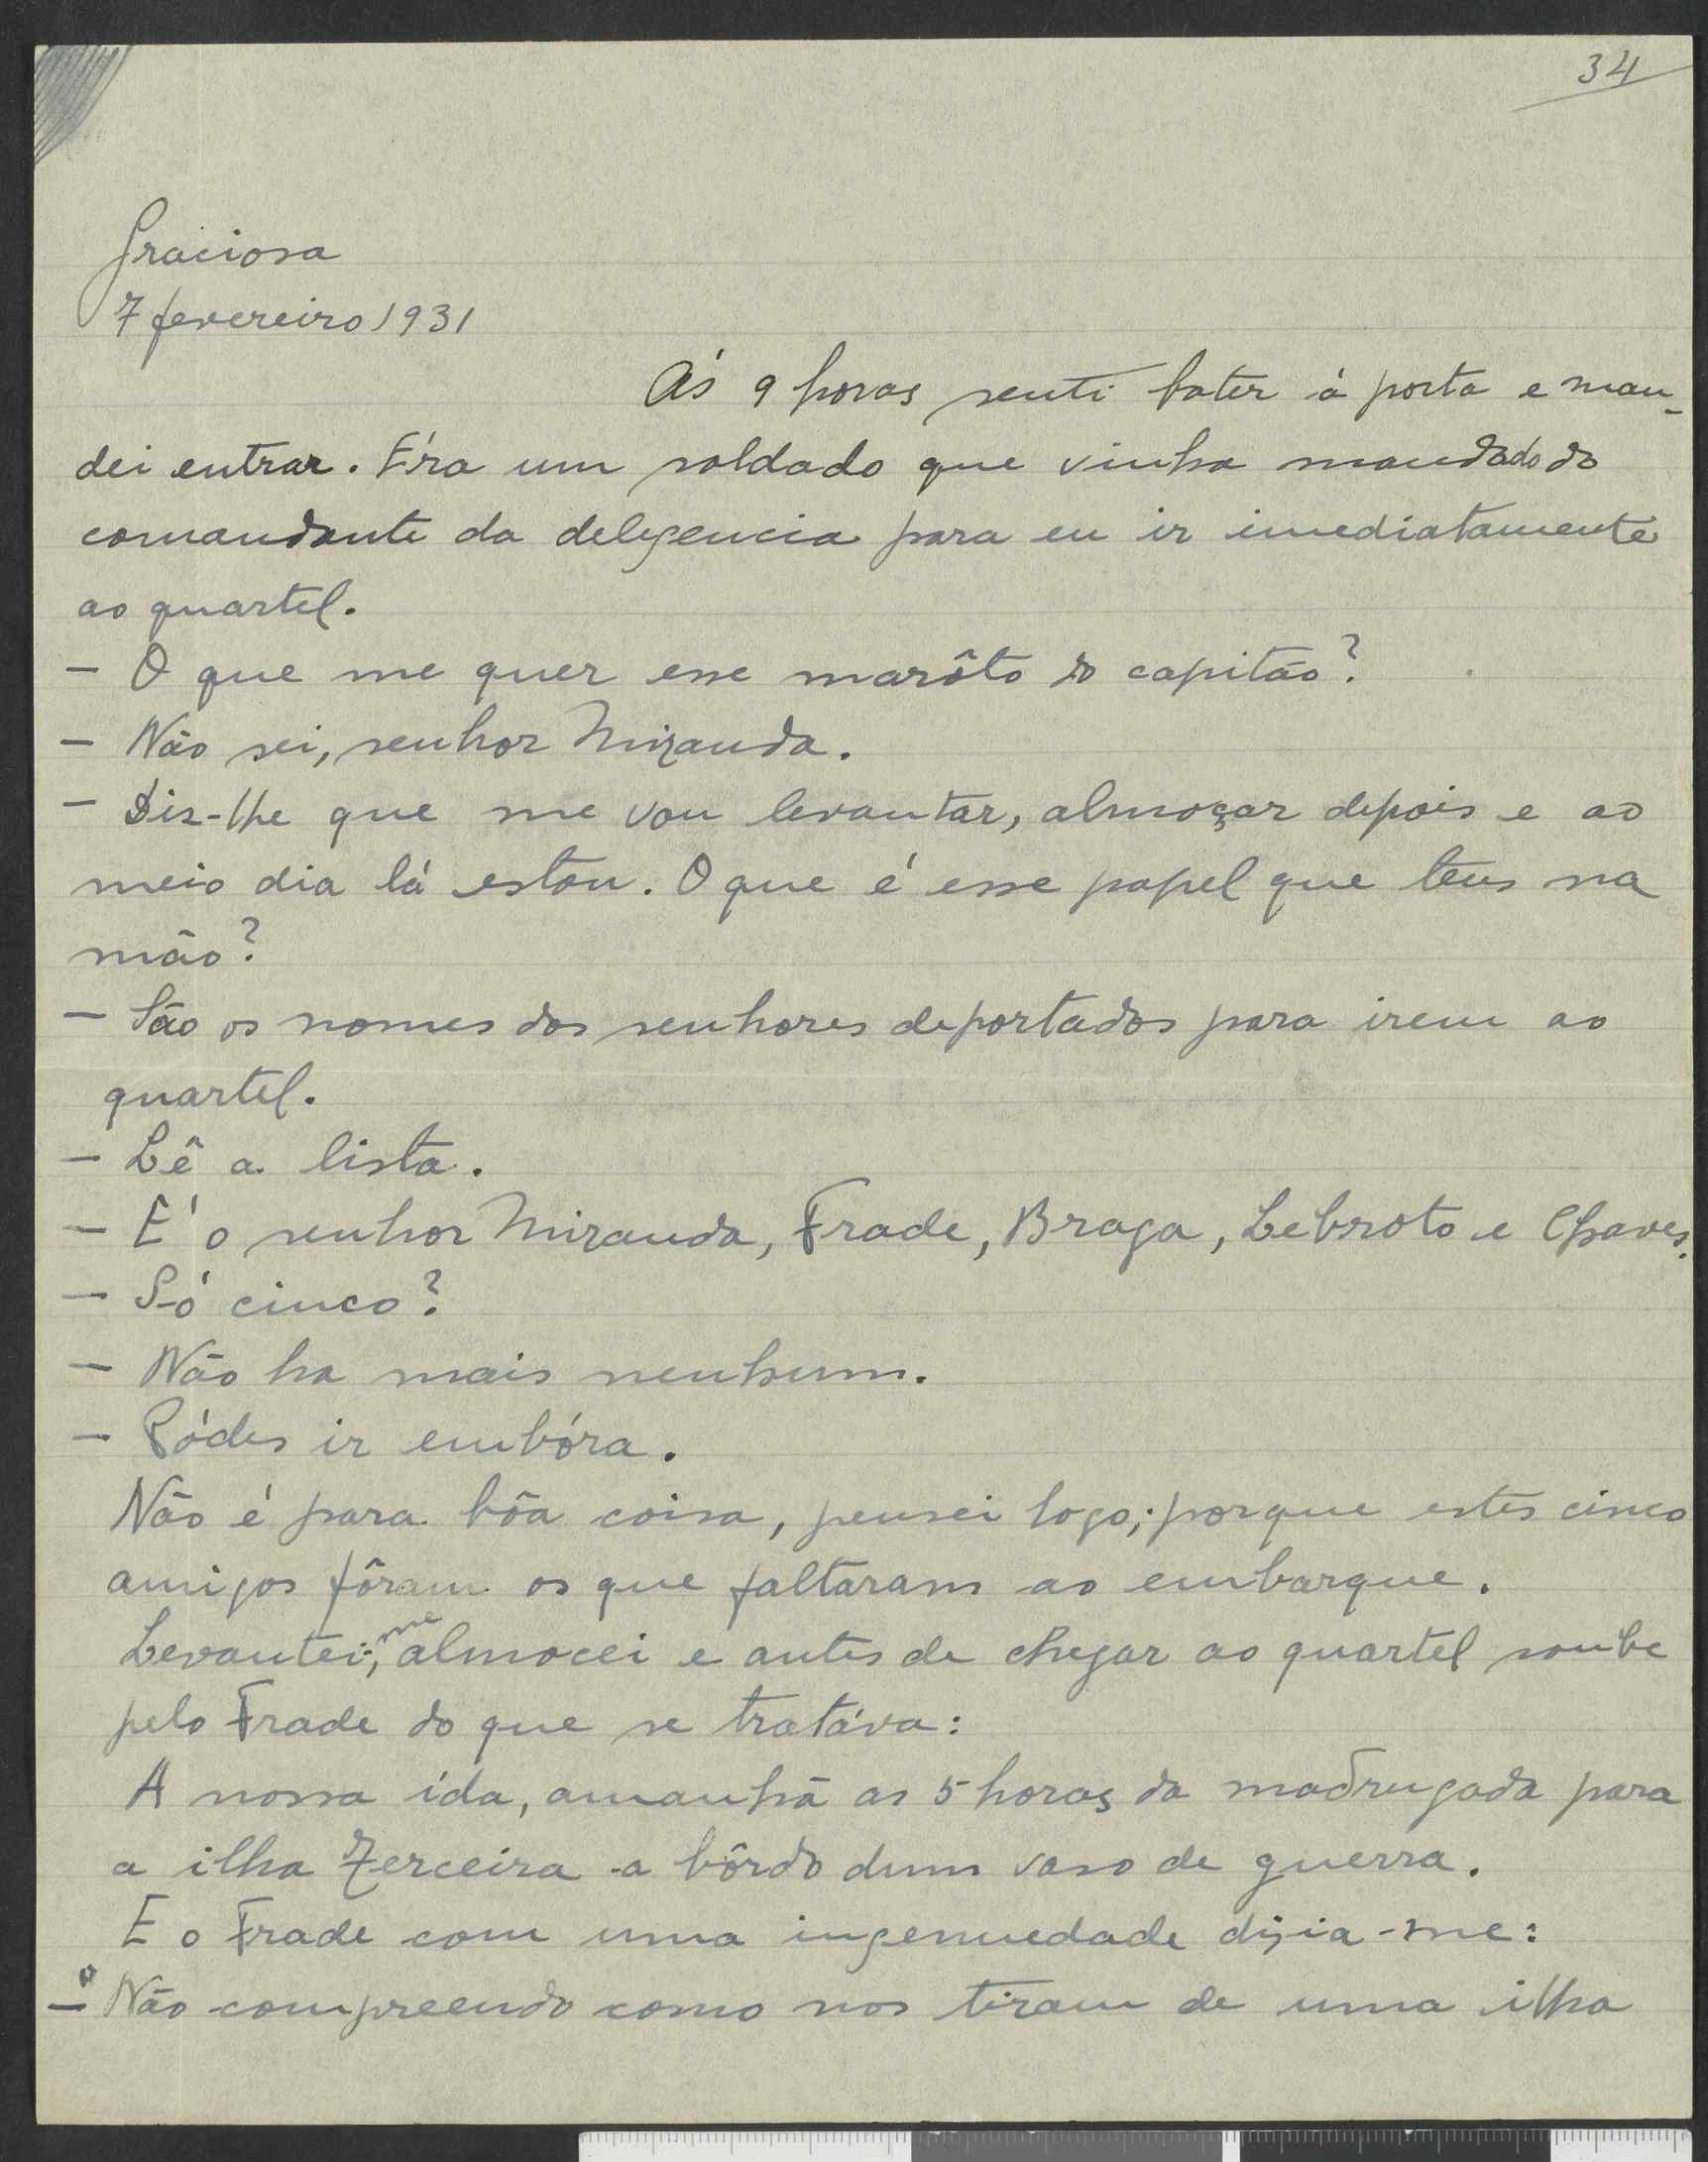 34
Graciosa
7 fevereiro 1931
Ás 9 horas senti bater á porta e man-
dei entrar. Éra um soldado que vinha mandado do
comandante da delegencia para eu ir imediatamente
ao quartel.
— O que me quer esse marôto do capitão?
— Não sei, senhor Miranda.
— Dis-lhe que me vou levantar, almoçar depois e ao
meio dia lá estou. O que é esse papel que tens na
mão?
— São os nomes dos senhores deportados para irem ao
quartel.
— Lê a lista.
— E' o senhor Miranda, Frade, Braga, Lebroto e Chaves.
— Só cinco?
— Não ha mais nenhum.
— Pódes ir embóra.
Não é para bôa coisa, pensei logo; porque estes cinco
amigos fôram os que faltaram ao embarque.
Levantei-me, almocei e antes de chegar ao quartel soube
pelo Frade do que se tratáva:
A nossa ída, amanhã as 5 horas da madrugada para
a ilha Terceira a bôrdo dum vaso de guerra.
E o Frade com uma ingenuedade dizia-me:
— Não compreendo como nos tiram de uma ilha